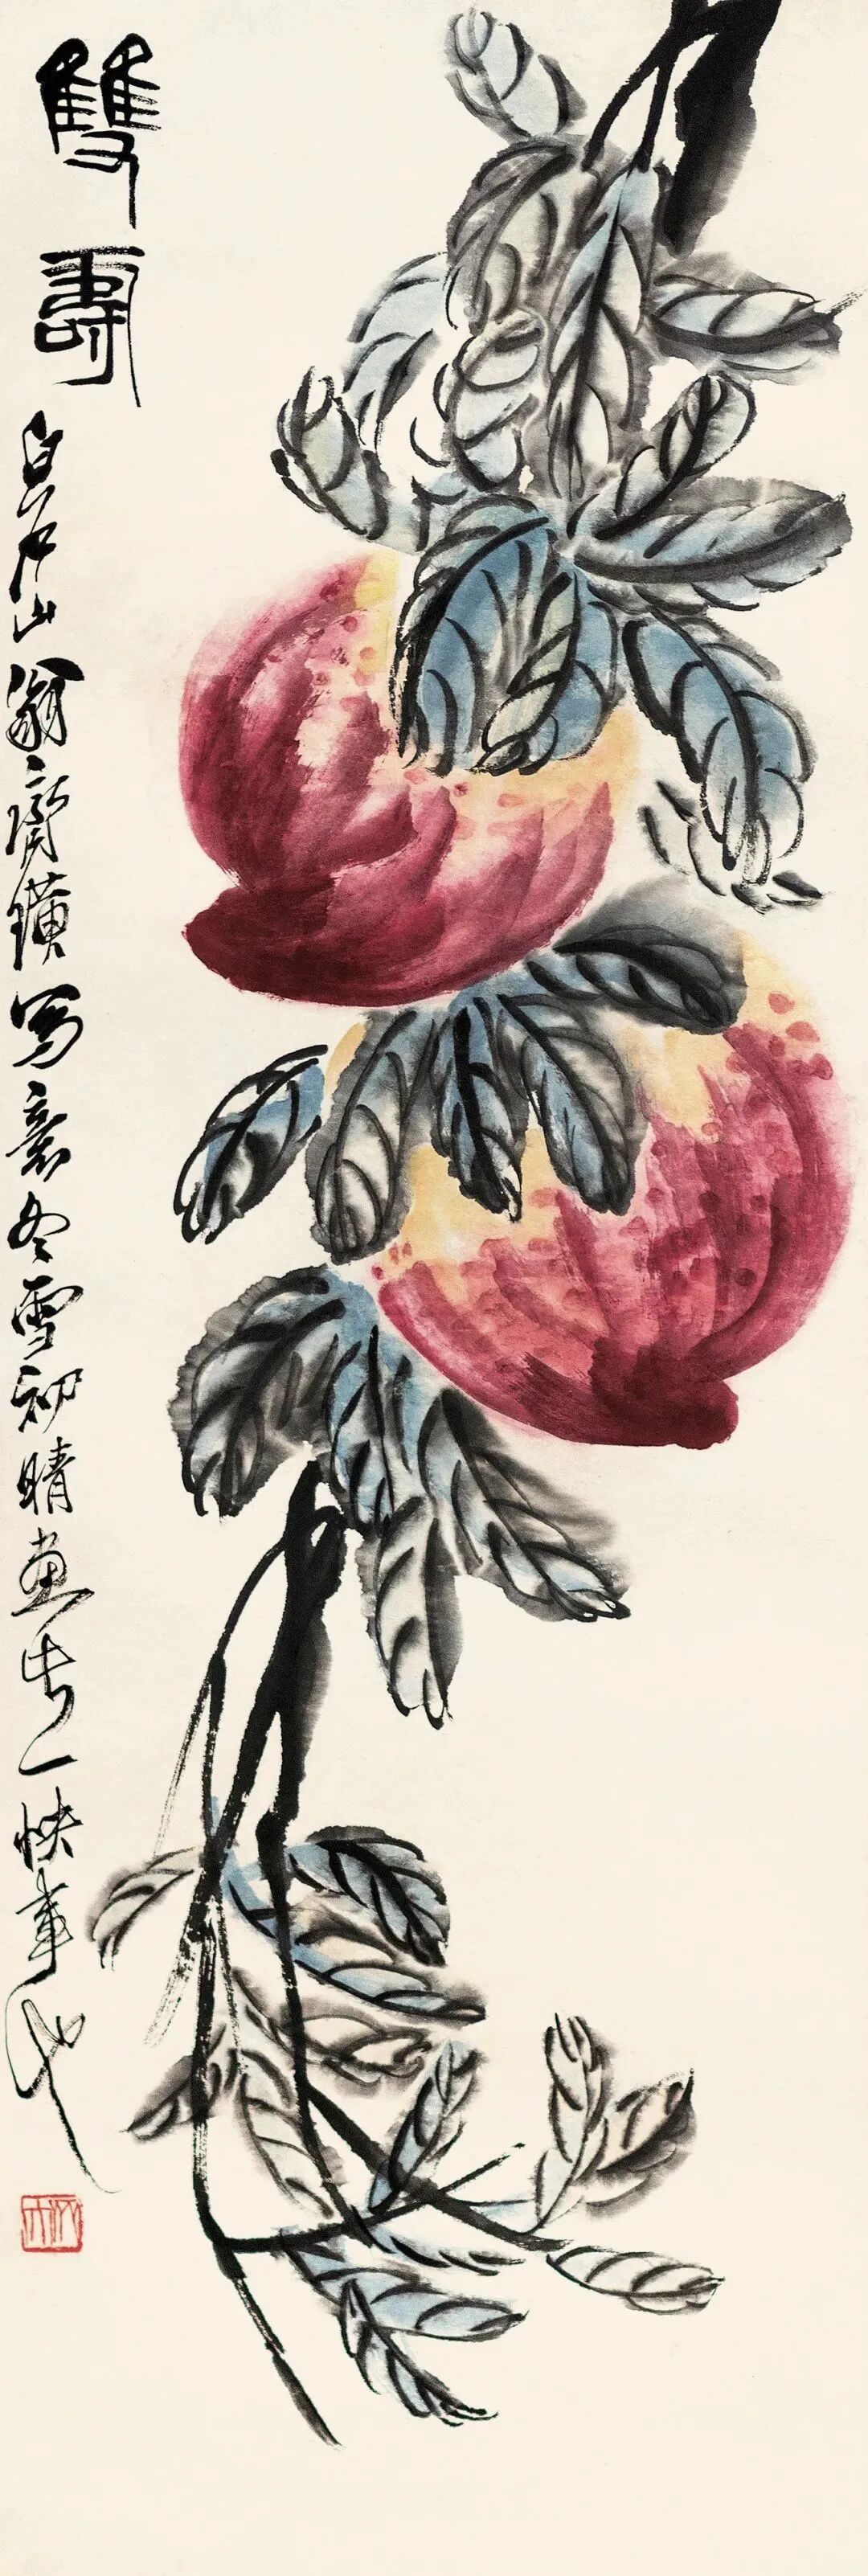 雙壽
白石山翁齊璜寫意冬雪初晴畫告一快事也
木人